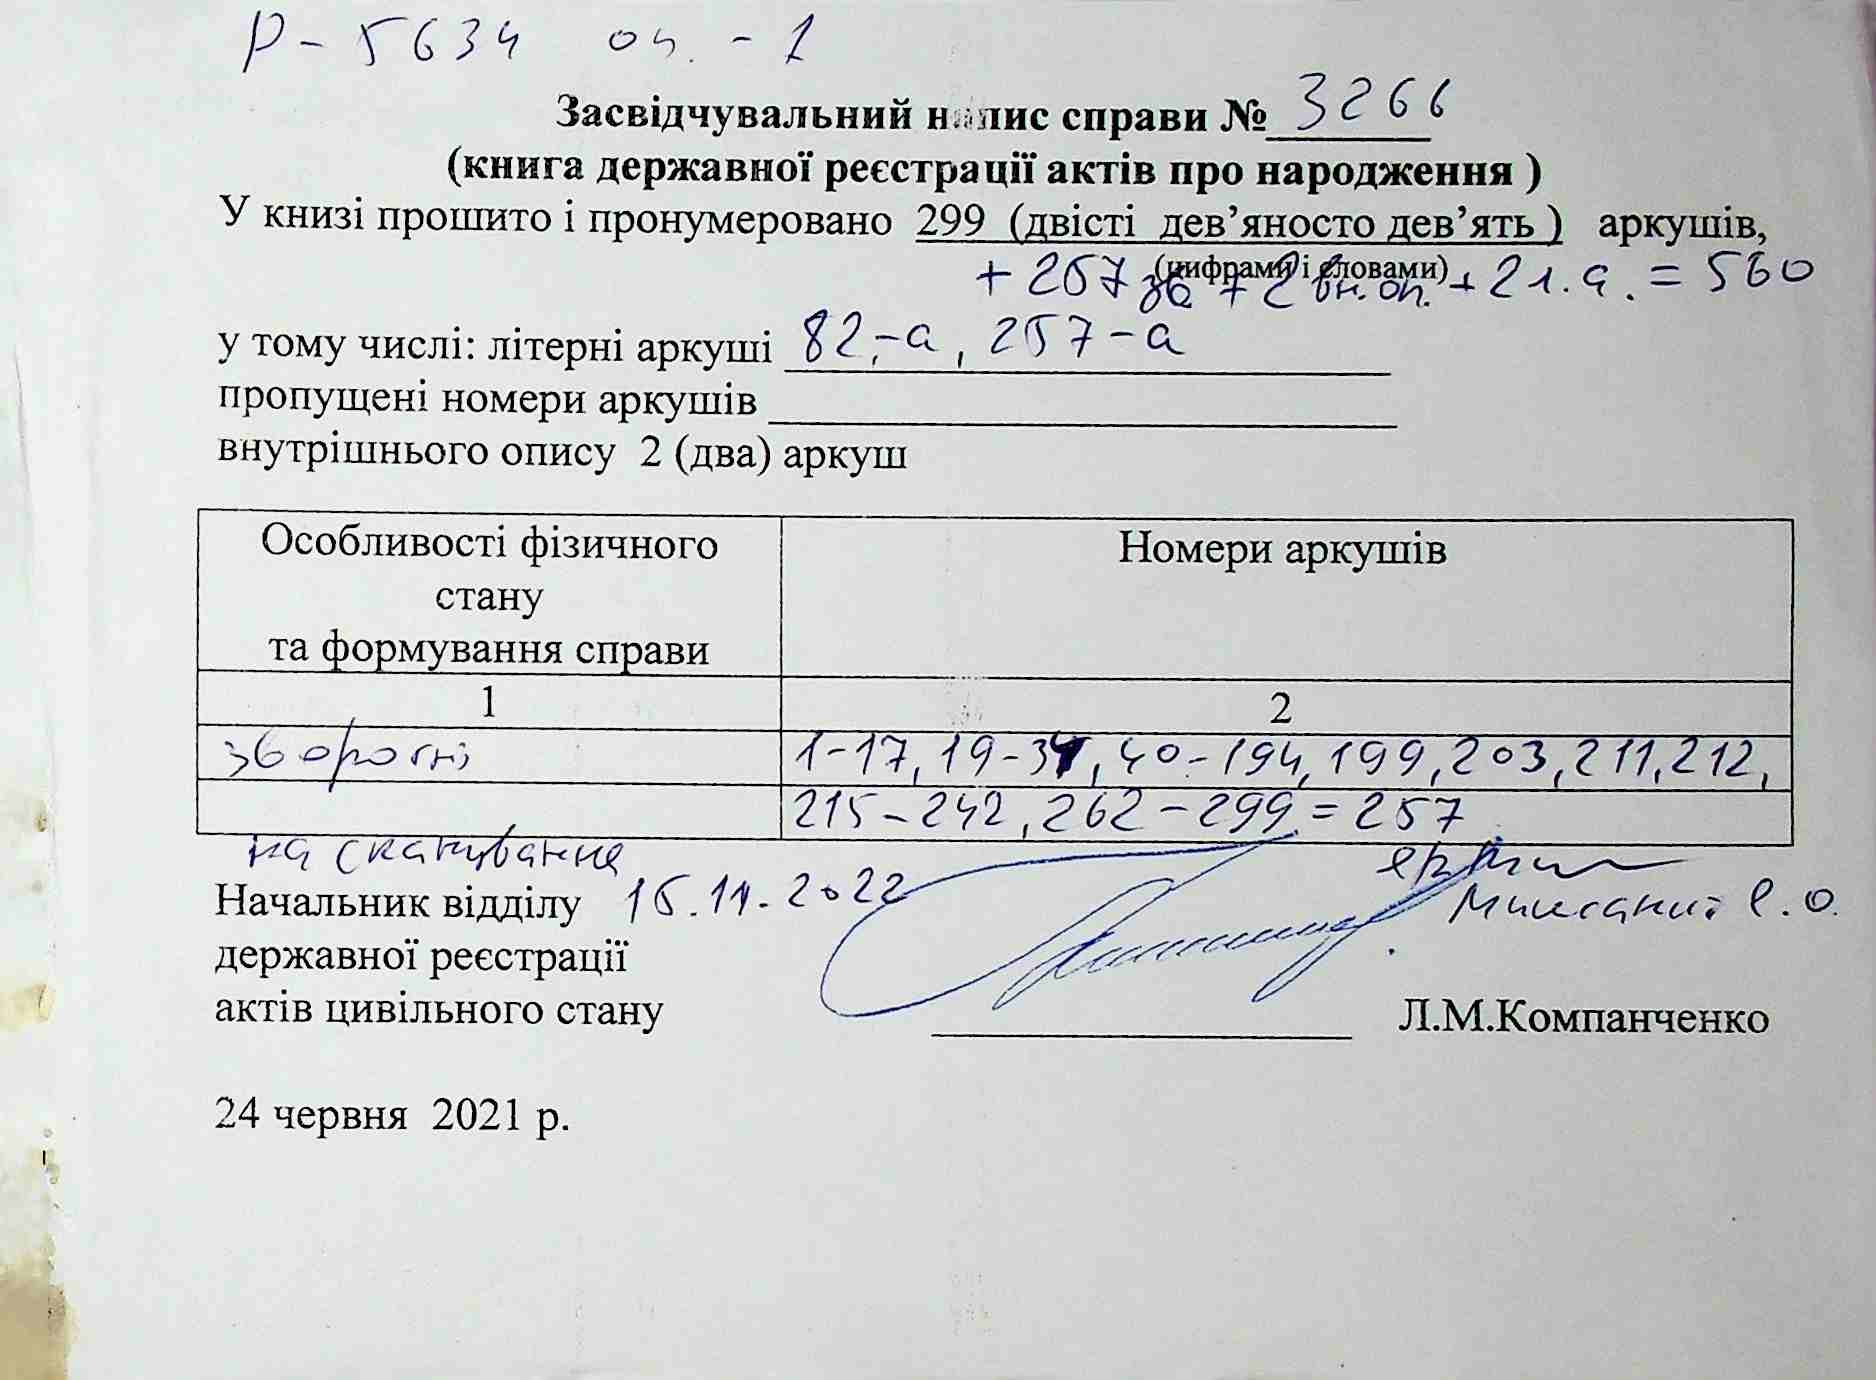 Р-5634 оп. -1
Засвідчувальний напис справи № 3266
(книга державної реєстрації актів про народження )
У книзі прошито і пронумеровано 299 (двісті дев’яносто дев’ять ) аркушів,
(цифрами і словами)
+ 257 зв + 2 вн.оп. + 2 л.а. = 560
у тому числі: літерні аркуші 82-а, 257-а
пропущені номери аркушів
внутрішнього опису 2 (два) аркуш
Особливості фізичного стану та формування справи
Номери аркушів
1
2
зворотні
1-17, 19-34, 40-194, 199, 203, 211, 212,
215-242, 262-299 = 257
на сканування
Начальник відділу 15.11.2022
державної реєстрації
актів цивільного стану Л.М.Компанченко
24 червня 2021 р.